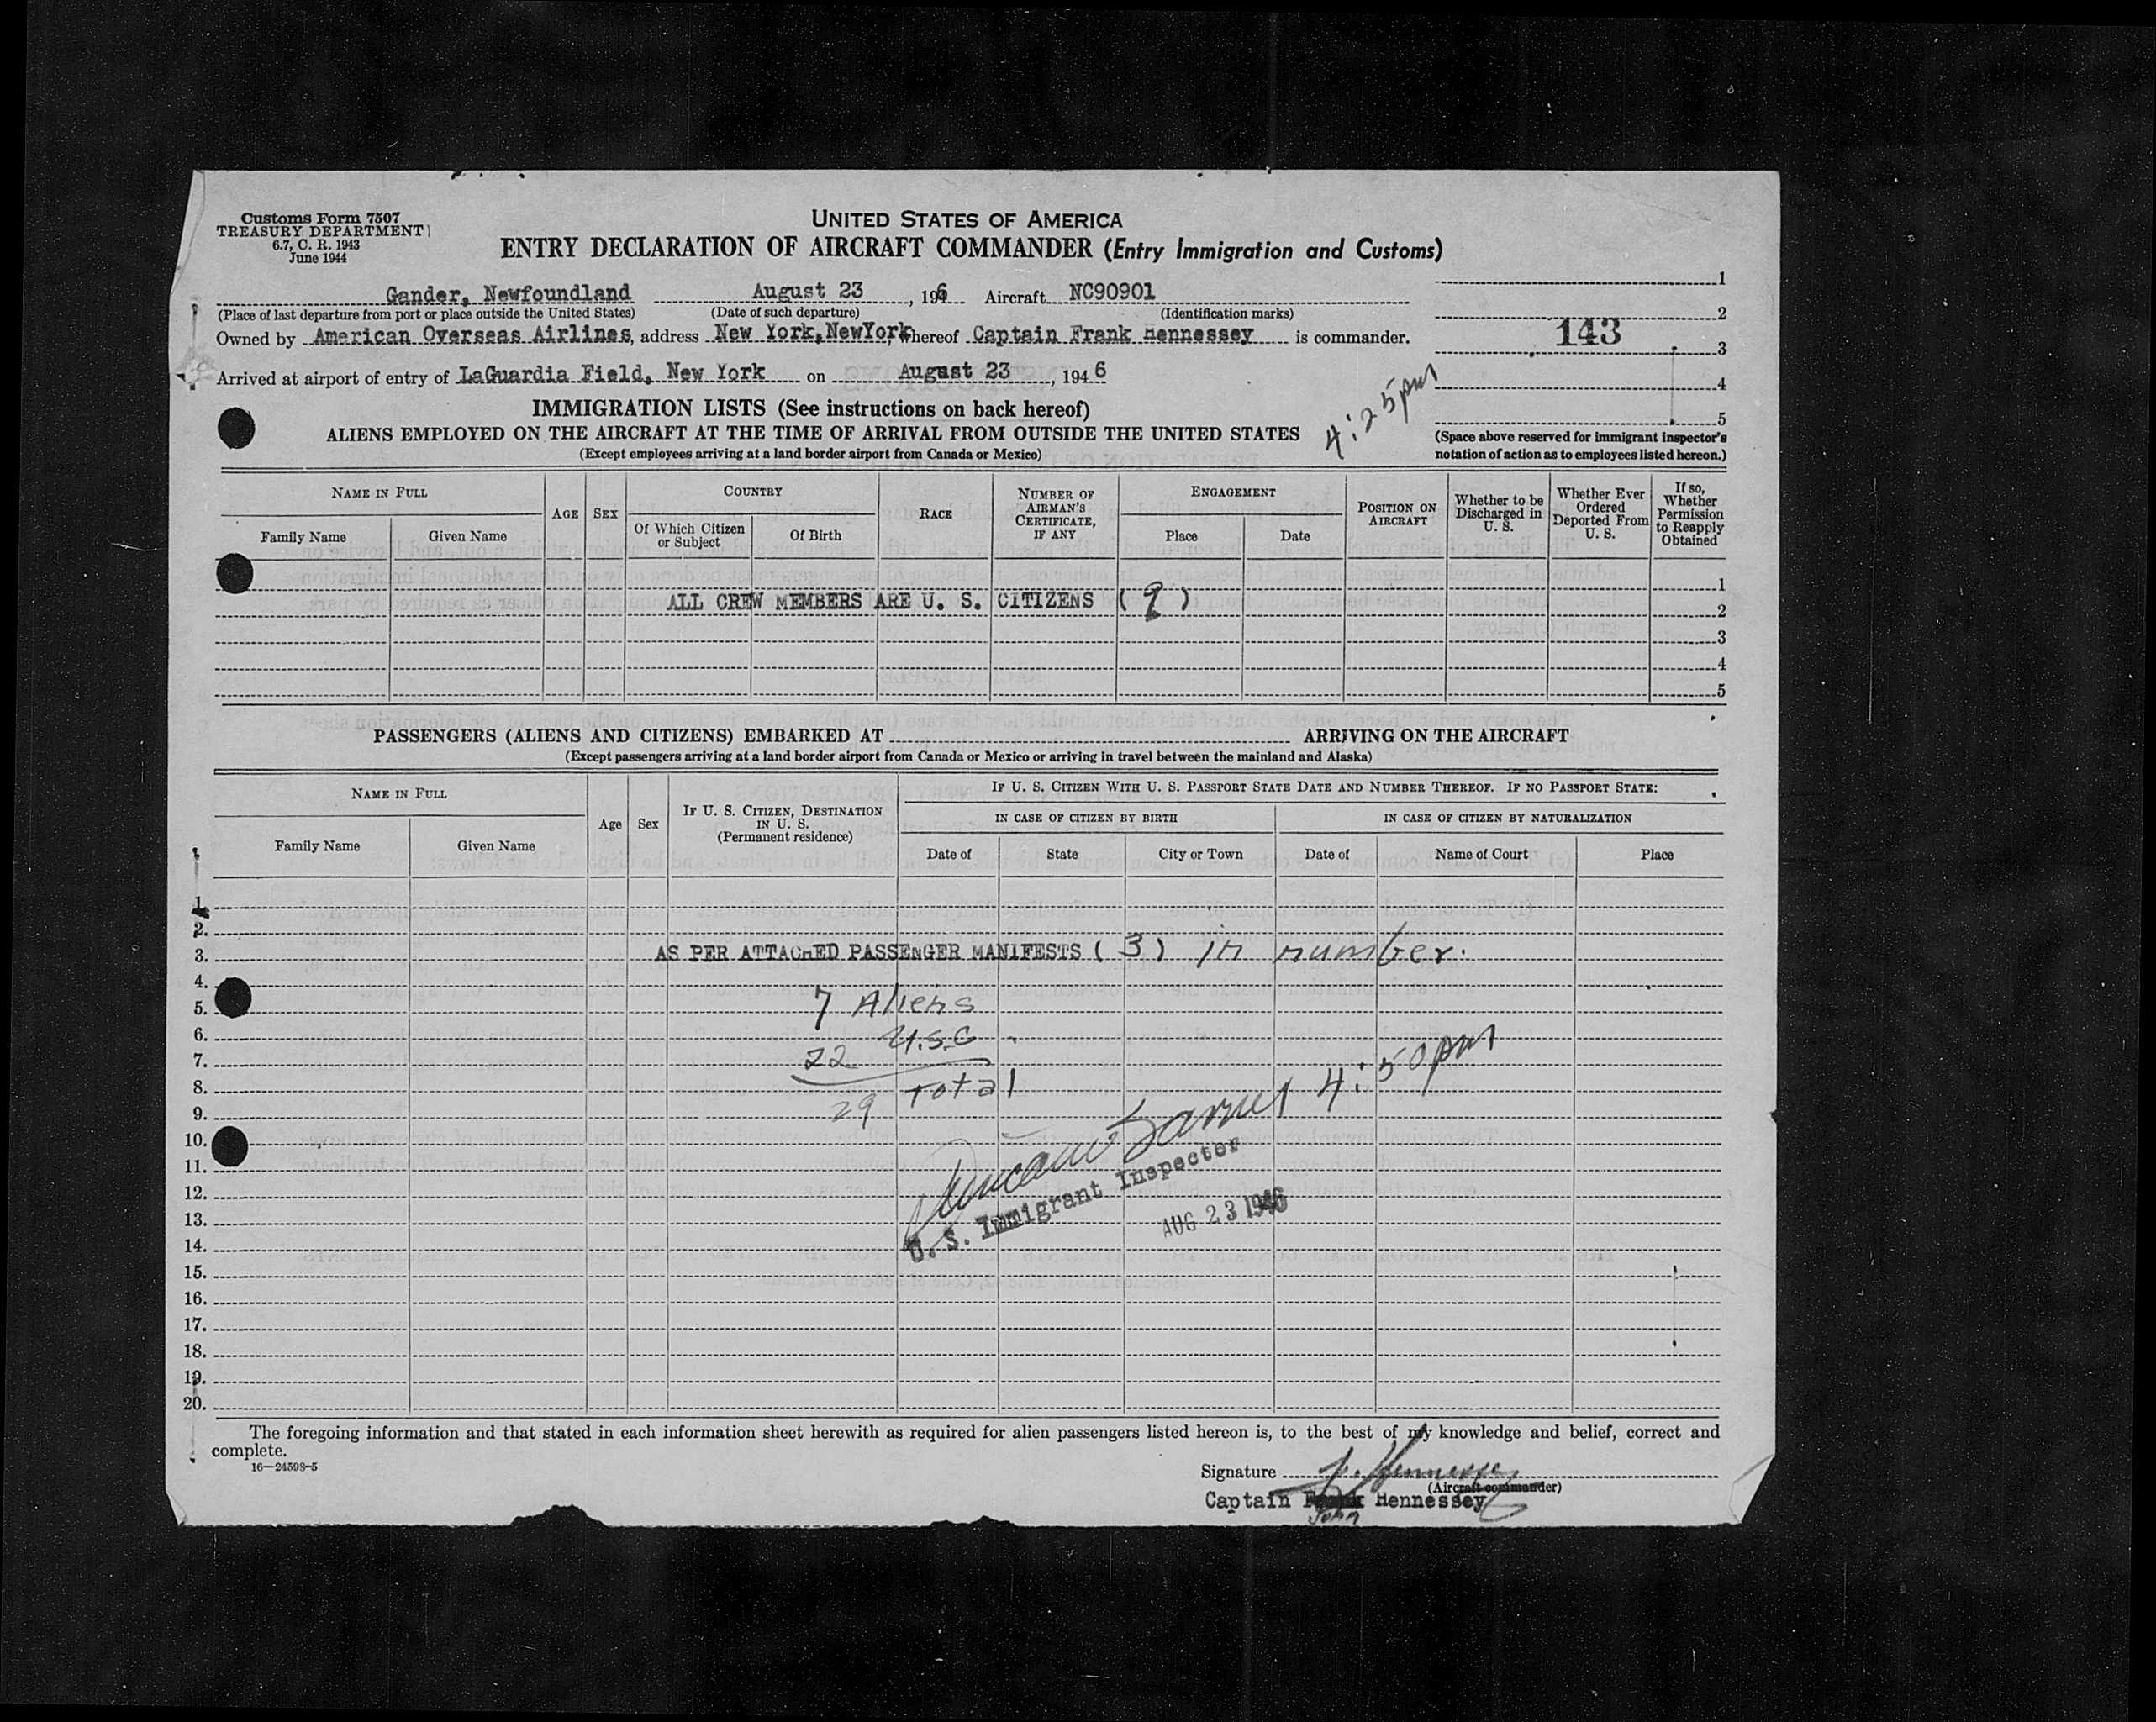 Customs Form 7507
TREASURY DEPARTMENT
6.7, C. R. 1943
June 1944
UNITED STATES OF AMERICA
ENTRY DECLARATION OF AIRCRAFT COMMANDER (Entry Immigration and Customs)
Gander, Newfoundland August 23, 1946 Aircraft NC90901
(Place of last departure from port or place outside the United States) (Date of such departure) (Identification marks)
Owned by American Overseas Airlines, address New York, NewYork, whereof Captain Frank Hennessey is commander.
Arrived at airport of entry of LaGuardia Field, New York on August 23, 1946
1
2
143
3
4
5
4:25pm
(Space above reserved for immigrant inspector's
notation of action as to employees listed hereon.)
IMMIGRATION LISTS (See instructions on back hereof)
ALIENS EMPLOYED ON THE AIRCRAFT AT THE TIME OF ARRIVAL FROM OUTSIDE THE UNITED STATES
(Except employees arriving at a land border airport from Canada or Mexico)
NAME IN FULL
Family Name Given Name
AGE SEX
COUNTRY
Of Which Citizen or Subject Of Birth
RACE
NUMBER OF AIRMAN'S CERTIFICATE, IF ANY
ENGAGEMENT
Place Date
POSITION ON AIRCRAFT
Whether to be Discharged in U. S.
Whether Ever Ordered Deported From U. S.
If so, Whether Permission to Reapply Obtained
1
ALL CREW MEMBERS ARE U. S. CITIZENS (9) 2
3
4
5
PASSENGERS (ALIENS AND CITIZENS) EMBARKED AT ARRIVING ON THE AIRCRAFT
(Except passengers arriving at a land border airport from Canada or Mexico or arriving in travel between the mainland and Alaska)
NAME IN FULL
Family Name Given Name
Age Sex
IF U. S. CITIZEN, DESTINATION IN U. S.
(Permanent residence)
IF U. S. CITIZEN WITH U. S. PASSPORT STATE DATE AND NUMBER THEREOF. IF NO PASSPORT STATE:
IN CASE OF CITIZEN BY BIRTH IN CASE OF CITIZEN BY NATURALIZATION
Date of State City or Town Date of Name of Court Place
1.
2.
3. AS PER ATTACHED PASSENGER MANIFESTS (3) in number.
4.
5. 7 Aliens
6. U.S.C
7. 22
8. Total 4:50pm
9. 29
10.
11.
12. U. S. Immigrant Inspector
13. AUG 23 1946
14.
15.
16.
17.
18.
19.
20.
The foregoing information and that stated in each information sheet herewith as required for alien passengers listed hereon is, to the best of my knowledge and belief, correct and
complete.
16—24598-5
Signature J. Hennessey
(Aircraft commander)
Captain Frank Hennessey
John